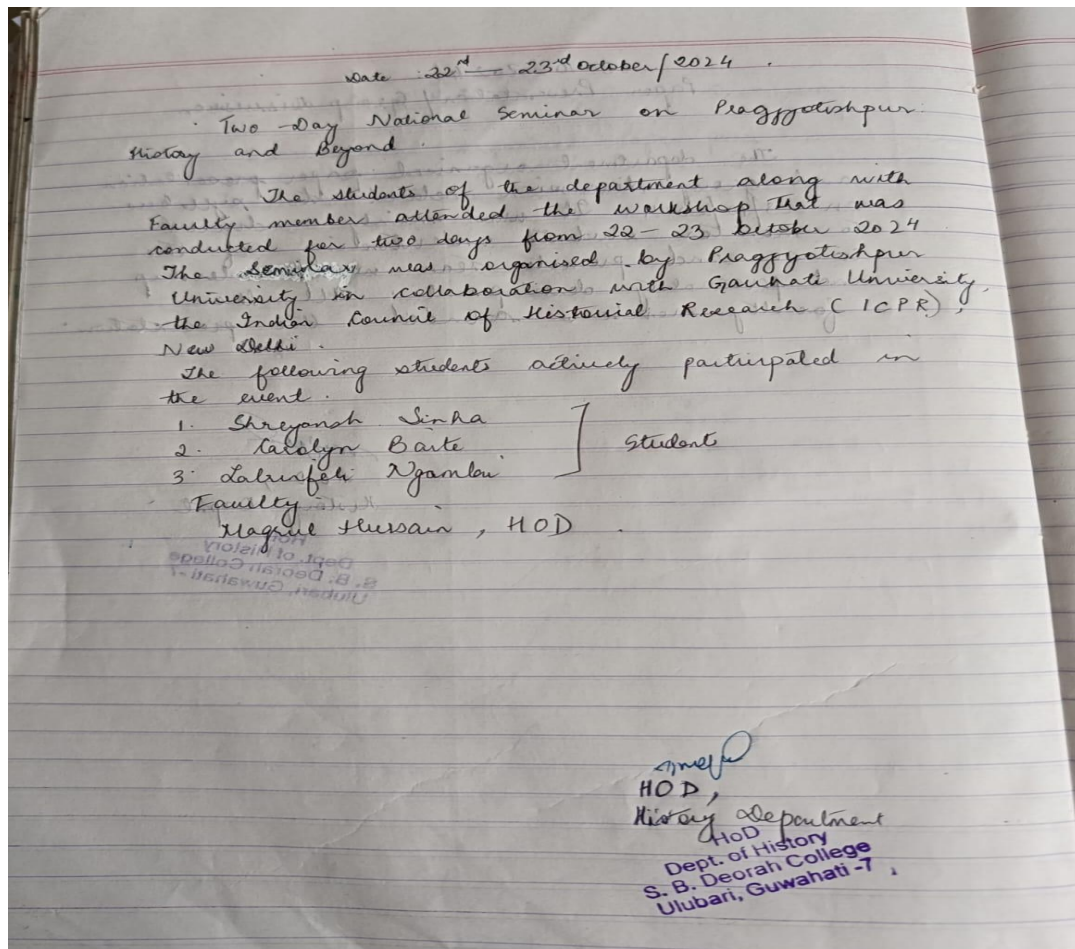 Date : 22nd — 23rd October/2024 .
Two-Day National Seminar on Pragjyotishpur
History and Beyond .
The students of the department along with
Faculty member attended the workshop that was
conducted for two days from 22 - 23 October 2024
The Seminar was organised by Pragjyotishpur
University in collaboration with Gauhati University,
the Indian Council of Historial Research (ICPR),
New Delhi .
The following students actively participated in
the event .
1. Shreyansh Sinha
2. Carolyn Baite
3. Ngamlai
Students
Faculty
Hussain, HOD .
HoD
Dept. of History
S. B. Deorah College
Ulubari, Guwahati-7
HOD,
History Department
HoD
Dept. of History
S. B. Deorah College
Ulubari, Guwahati -7